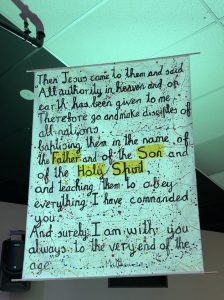 Then Jesus came to them and said
"All authority in heaven and on
earth has been given to me
Therefore go and make disciples of
all nations
baptising them in the name of
the Father and of the Son and
of the Holy Spirit
and teaching them to obey
everything I have commanded
you.
And surely I am with you
always to the very end of the
age